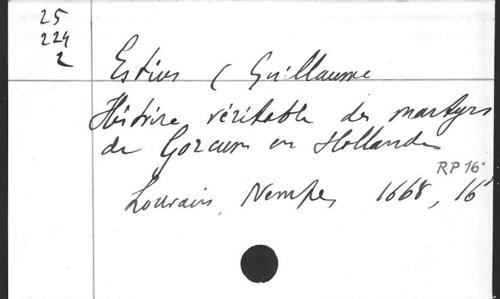 25
224
2
Estius ( Guillaume
Histoire véritable des martyrs
de Gorcum en Hollande
RP 16°
Louvain, Nempe, 1668, 16°